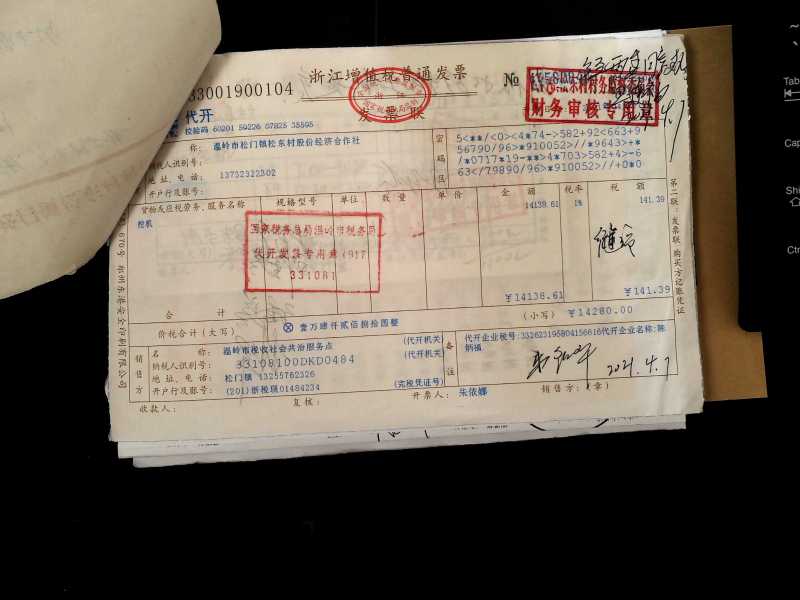 33001900104
浙江增值税普通发票
№
发票联
代开
校验码 60201 59226 07825 35595
财务审核专用章
称：温岭市松门镇松东村股份经济合作社
纳税人识别号：
地址、电话：13732322302
开户行及账号：
密码区
5<**/<0><4*74->582+92<663+9
56790/96>*910052>//*9643>+*
/*0717*19-**>4*703>582+4>-6
63</79890/96>*910052>//+0*0
货物或应税劳务、服务名称 规格型号 单位 数量 单价 金额 税率 税额
挖机 14138.61 1% 141.39
国家税务总局温岭市税务局
代开发票专用章
331081
合计 ￥14138.61 ￥141.39
价税合计（大写） ⊗ 壹万肆仟贰佰捌拾圆整 （小写）￥14280.00
销售方
名称：温岭市税收社会共治服务点 （代开机关）
纳税人识别号：33108100DKD0484 （代开机关）
地址、电话：松门镇 13255762326
开户行及账号：(201)浙税现01484234 （完税凭证号）
备注
代开企业税号:332623195804156616代开企业名称:陈
炳福
2021.4.7
收款人： 复核： 开票人：朱依娜 销售方：（章）
第二联：发票联 购买方记账凭证